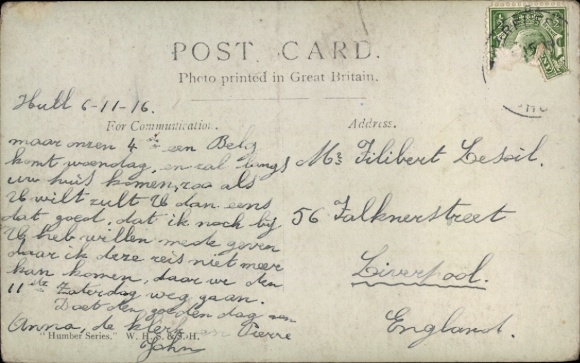 POST CARD.
Photo printed in Great Britain.
Hull 6-11-16.
For Communication.
maar onzen 4de een Belg
komt woensdag, en zal langs
uw huis komen, zoo als
U wilt zult U dan eens
dat goed, dat ik nog bij
U heb willen mede geven
daar ik deze reis niet meer
kan komen, daar we den
11de Zaterdag weg gaan.
Doet den goeden dag van
Anna, de klerk en Pierre
John
"Humber Series." W. H. S. & S. H.
Address.
Mr Filibert Lesoil.
56 Falknerstreet
Liverpool.
England.